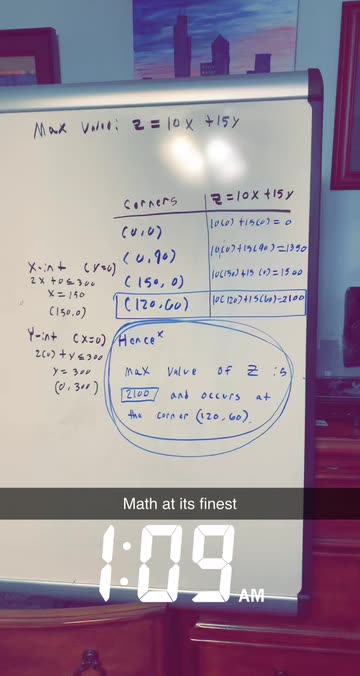 Max Value: Z = 10X + 15Y
Corners Z = 10X + 15Y
(0,0) 10(0) + 15(0) = 0
(0,90) 10(0) + 15(90) = 1350
(150,0) 10(150) + 15(0) = 1500
(120,60) 10(120) + 15(60) = 2100
X-int (Y=0)
2X + 0 ≤ 300
X = 150
(150,0)
Y-int (X=0)
2(0) + Y ≤ 300
Y = 300
(0,300)
Hence
Max Value of Z is
2100 and occurs at
the corner (120,60).
Math at its finest
1:09 AM